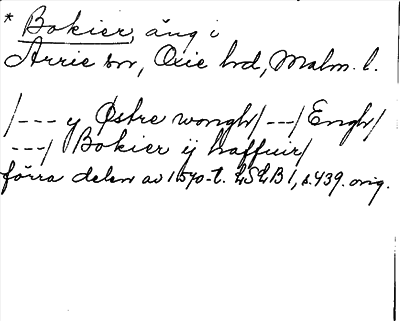 * Bokier, äng i
Arrie sn, Oxie hd, Malm. l.
/--- y Østre wongh/ ---/ Engh/
---/ Bokier ij haffuir/
förra delen av 1570-t. LSLB 1, s. 439. orig.